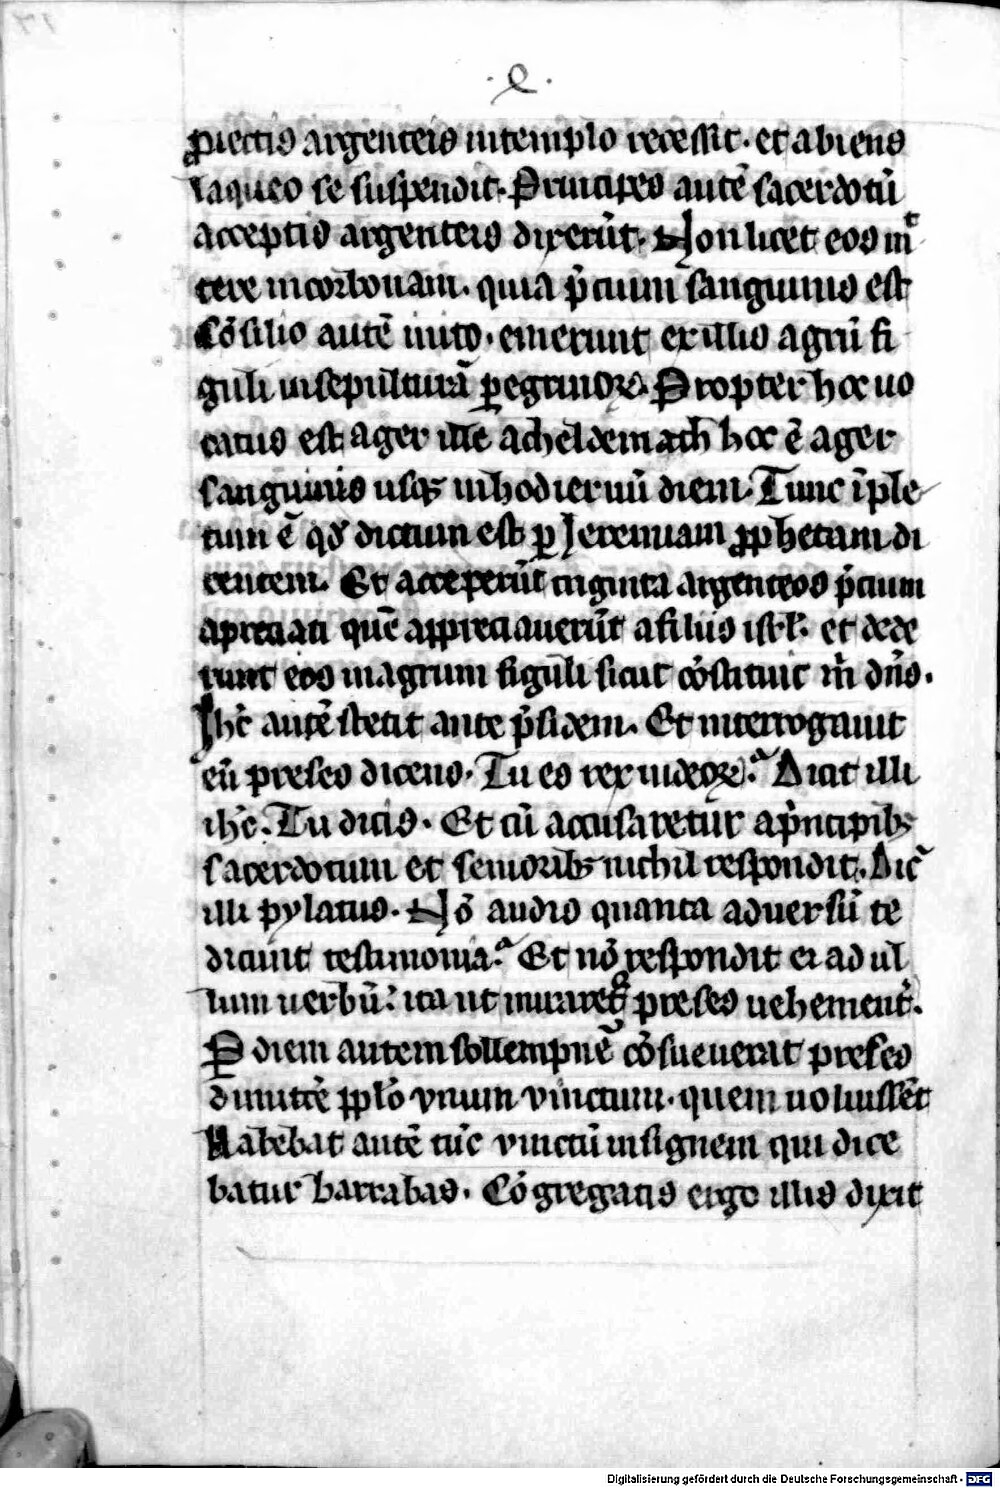 ·e·
ꝓiectis argenteis in templo recessit. et abiens
laqueo se suspendit. Principes autē sacerdotū
acceptis argenteis dixerūt. Non licet eos mit
tere in corbonam. quia p̄cium sanguinis est
Cōsilio autē inito. emerunt ex illis agrū fi
guli in sepulturā ꝑegrinoꝝ. Propter hoc uo
catus est ager ille acheldemach hoc ē ager
sanguinis usqꝫ in hodiernū diem. Tunc īple
tum ē qđ dictum est ꝑ Jeremiam ꝓphetam di
centem. Et acceperūt triginta argenteos p̄cium
apreciati quē appreciauerūt a filiis isrl. et dede
runt eos in agrum figuli sicut cōstituit m̄ dn̄s.
Ihc̄ autē stetit ante p̄sidem. Et interrogauit
eū preses dicens. Tu es rex iudeoꝝ? Dicit illi
ihc̄. Tu dicis. Et cū accusaretur a p̄ncipibꝫ
sacerdotum et senioribꝫ nichil respondit. Dic̄
illi pylatus. Nō audis quanta aduersū te
dicunt testimonia? Et nō respondit ei ad ul
lum uerbū: ita ut miraretᷣ preses uehement̄.
P diem autem sollempnē cōsueuerat preses
dimittē pplō vnum vinctum. quem uoluissēt
Habebat autē tūc vinctū insignem qui dice
batur barrabas. Cōgregatis ergo illis dixit
Digitalisierung gefördert durch die Deutsche Forschungsgemeinschaft - DFG